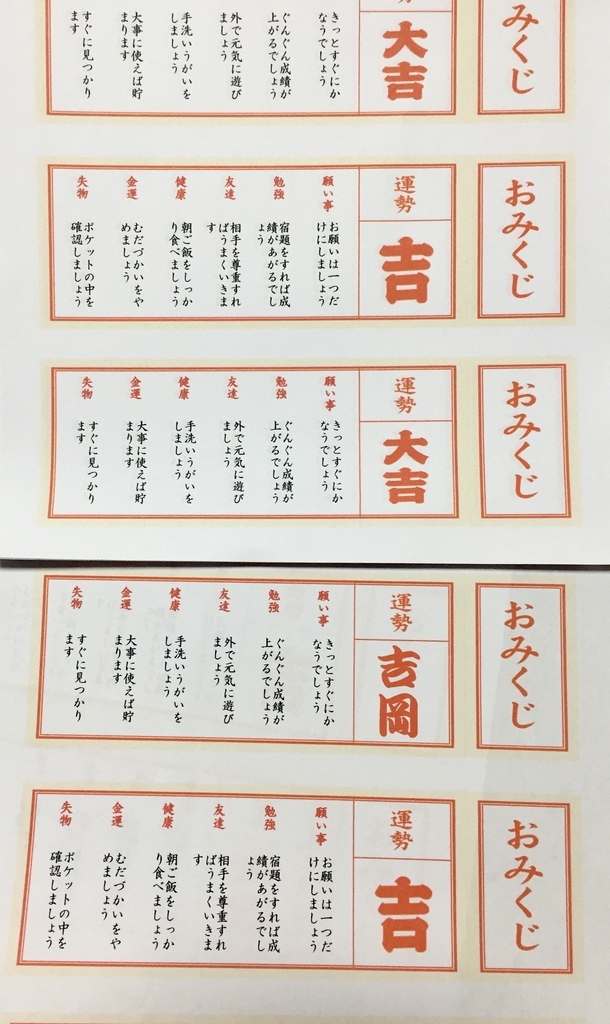 みくじ
大吉
きっとすぐにか
なうでしょう
ぐんぐん成績が
上がるでしょう
外で元気に遊び
ましょう
手洗いうがいを
しましょう
大事に使えば貯
まります
すぐに見つかり
ます
おみくじ
運勢
吉
願い事
お願いは一つだ
けにしましょう
勉強
宿題をすれば成
績があがるでし
ょう
友達
相手を尊重すれ
ばうまくいきま
す
健康
朝ご飯をしっか
り食べましょう
金運
むだづかいをや
めましょう
失物
ポケットの中を
確認しましょう
おみくじ
運勢
大吉
願い事
きっとすぐにか
なうでしょう
勉強
ぐんぐん成績が
上がるでしょう
友達
外で元気に遊び
ましょう
健康
手洗いうがいを
しましょう
金運
大事に使えば貯
まります
失物
すぐに見つかり
ます
おみくじ
運勢
吉岡
願い事
きっとすぐにか
なうでしょう
勉強
ぐんぐん成績が
上がるでしょう
友達
外で元気に遊び
ましょう
健康
手洗いうがいを
しましょう
金運
大事に使えば貯
まります
失物
すぐに見つかり
ます
おみくじ
運勢
吉
願い事
お願いは一つだ
けにしましょう
勉強
宿題をすれば成
績があがるでし
ょう
友達
相手を尊重すれ
ばうまくいきま
す
健康
朝ご飯をしっか
り食べましょう
金運
むだづかいをや
めましょう
失物
ポケットの中を
確認しましょう